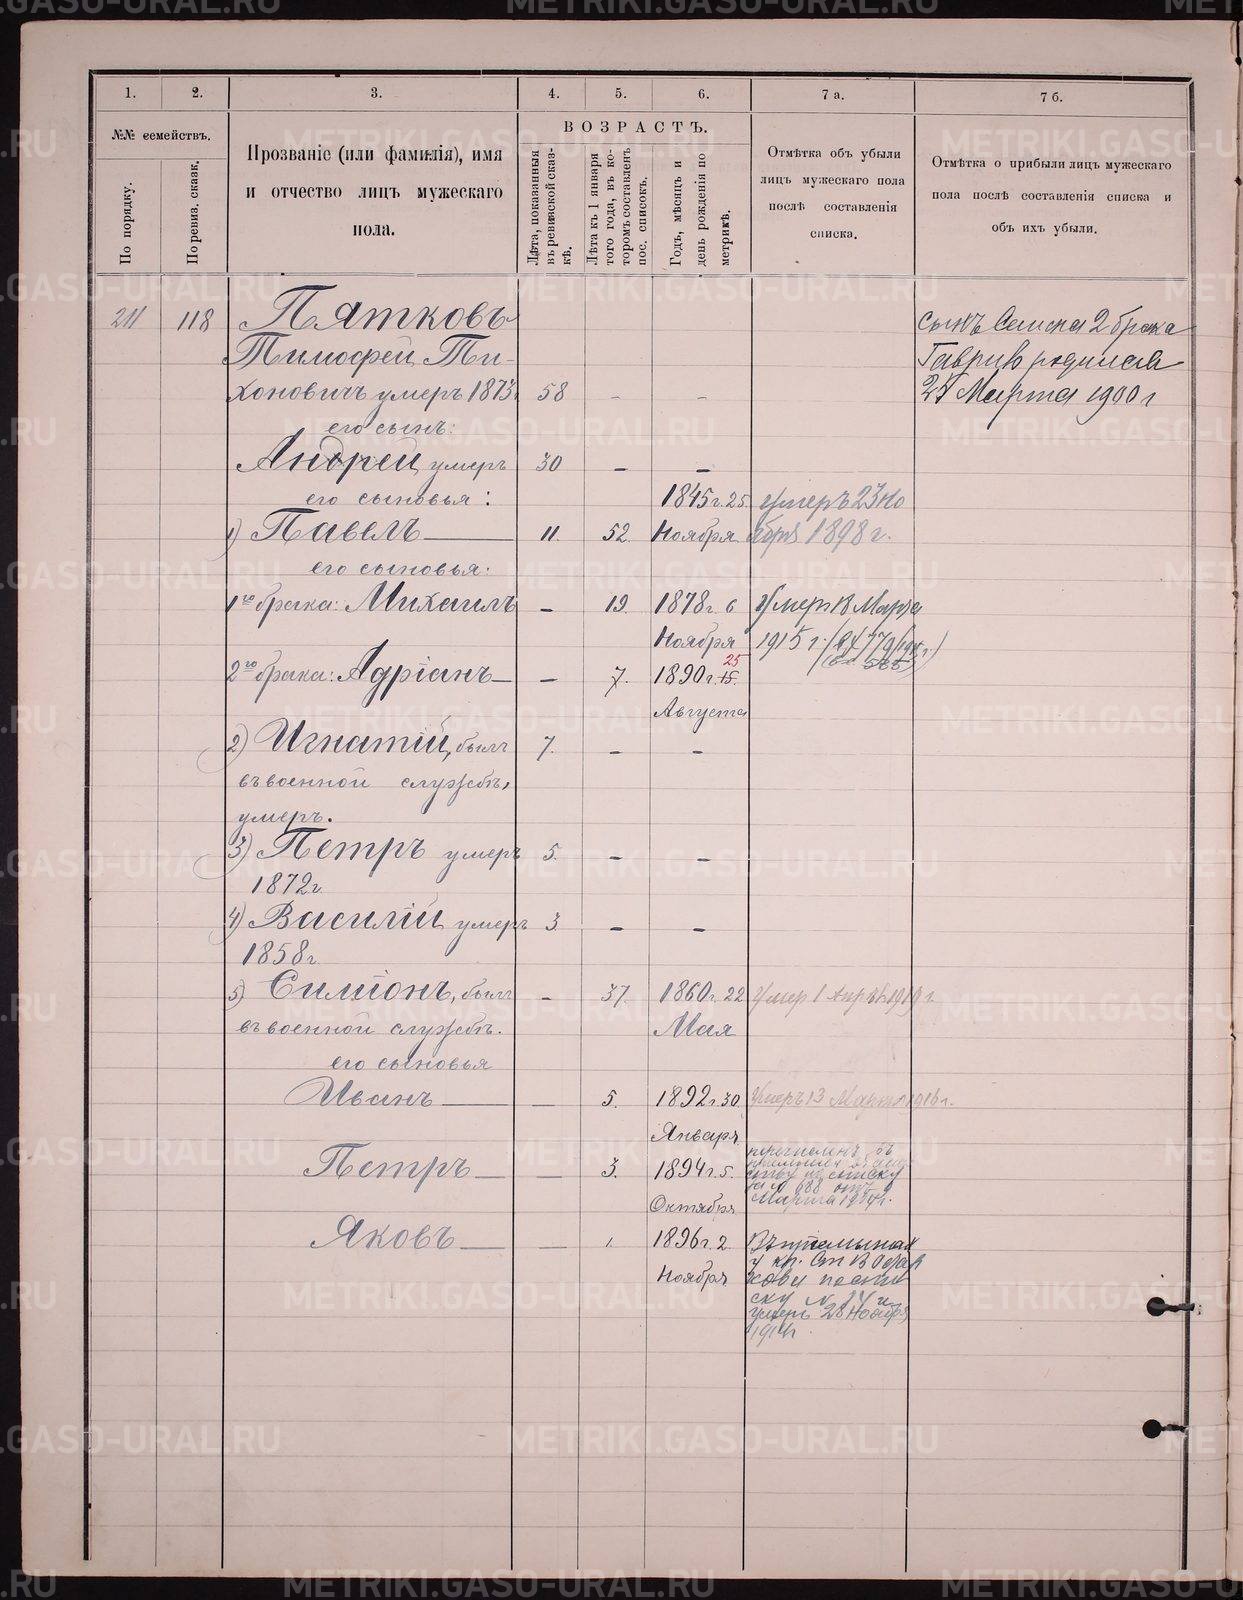 1.
2.
3.
4.
5.
6.
7 а.
7 б.
№№ семействъ.
По порядку.
По ревиз. сказк.
Прозваніе (или фамилія), имя
и отчество лицъ мужескаго
пола.
ВОЗРАСТЪ.
Лѣта, показанныя
въ ревизской сказ-
кѣ.
Лѣта къ 1 января
того года, въ ко-
торомъ составленъ
пос. списокъ.
Годъ, мѣсяцъ и
день рожденія по
метрикѣ.
Отмѣтка объ убыли
лицъ мужескаго пола
послѣ составленія
списка.
Отмѣтка о прибыли лицъ мужескаго
пола послѣ составленія списка и
объ ихъ убыли.
211 118 Пятковъ
Тимофей Ти-
хоновичъ умеръ 1873г 58 - -
сынъ 2 брака
Гавриилъ родился
Марта 1900 г
его сынъ:
Андрей умеръ 30 - -
его сыновья:
1) Павелъ 11. 52. 1845г. 25
Ноября
умеръ 23 Но
ября 1898 г.
его сыновья:
1го брака: Михаилъ - 19. 1878г. 6
Ноября
Умеръ Марта
1915 г.
2го брака: Адріанъ - 7. 1890г. 15. 25
Августа
2) Игнатій, былъ 7. - -
въ военной службѣ,
умеръ.
3) Петръ умеръ 5. - -
1872г
4) Василій умеръ 3. - -
1858г.
5) Симіонъ, былъ - 37. 1860г. 22
Мая
Умер 1 1919 г
въ военной службѣ.
его сыновья
Иванъ 5. 1892г. 30
Января
Умеръ 13 Марта 1916г.
Петръ 3. 1894г. 5.
Октября
списку
688
Марта
Яковъ 1. 1896г. 2
Ноября
у кр.
умеръ 28 Ноября
METRIKI.GASO-URAL.RU